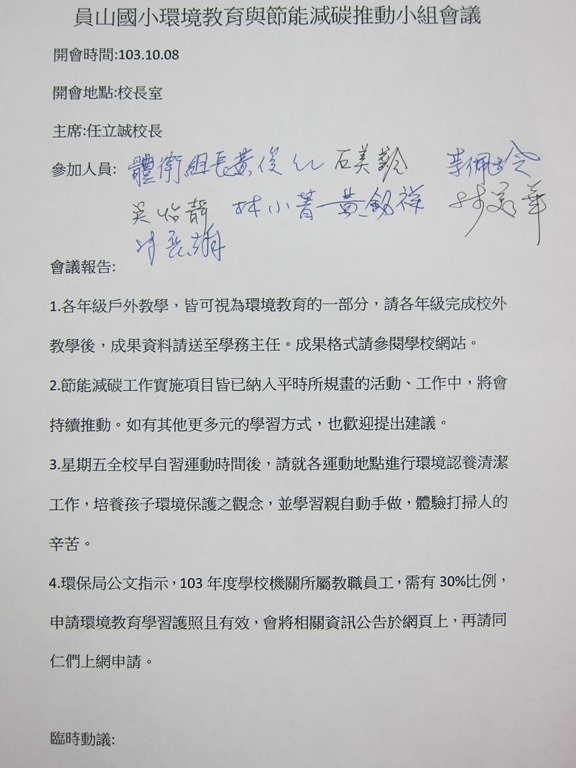 員山國小環境教育與節能減碳推動小組會議
開會時間:103.10.08
開會地點:校長室
主席:任立誠校長
參加人員: 體衛組長黃俊 石美齡 李佩玲
吳怡靜 林小菁 黃釵祥
會議報告:
1.各年級戶外教學，皆可視為環境教育的一部分，請各年級完成校外
教學後，成果資料請送至學務主任。成果格式請參閱學校網站。
2.節能減碳工作實施項目皆已納入平時所規畫的活動、工作中，將會
持續推動。如有其他更多元的學習方式，也歡迎提出建議。
3.星期五全校早自習運動時間後，請就各運動地點進行環境認養清潔
工作，培養孩子環境保護之觀念，並學習親自動手做，體驗打掃人的
辛苦。
4.環保局公文指示，103 年度學校機關所屬教職員工，需有 30%比例，
申請環境教育學習護照且有效，會將相關資訊公告於網頁上，再請同
仁們上網申請。
臨時動議: